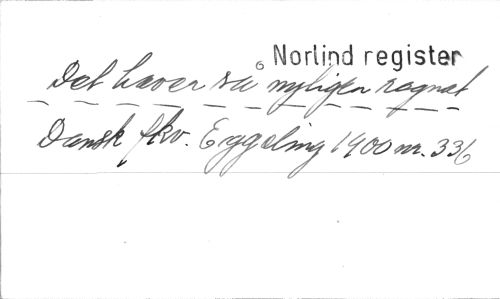 Norlind register
Det haver så nyligen regnat
Dansk fkv. Eggeling 1900 nr. 336